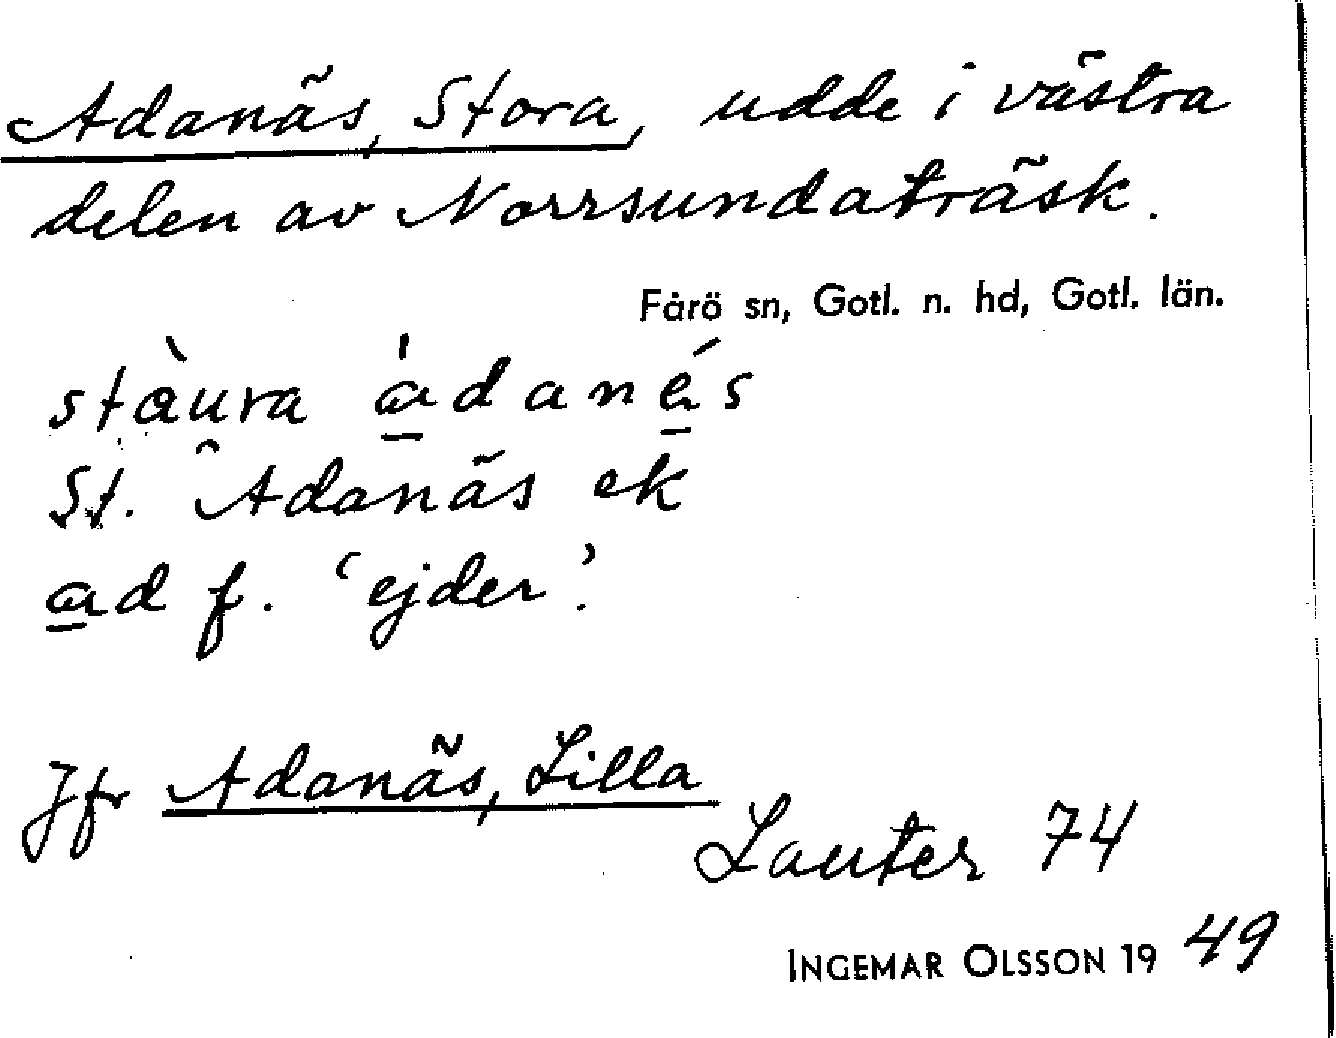 Adanäs, Stora, udde i västra
delen av Norrsundaträsk.
Fårö sn, Gotl. n. hd, Gotl. län.
stàura ádanés
St. Adanäs ek
ad f. ‘ejder’.
Jfr Adanäs, Lilla
Lauter 74
INGEMAR OLSSON 19 49